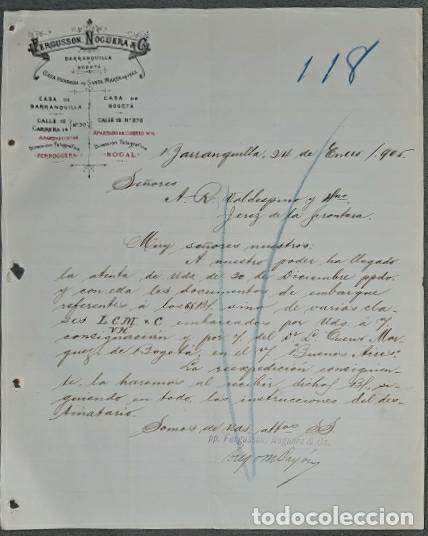 FERGUSSON, NOGUERA & Cº
BARRANQUILLA
Y
BOGOTÁ
CASA FUNDADA EN SANTA MARTA EN
CASA DE BARRANQUILLA
CALLE 12 CARRERA 14 Nº 30
APARTADO
Dirección Telegráfica
"FERNOGUERA"
CASA DE BOGOTÁ
CALLE 12 Nº 270
APARTADO DE CORREO
Dirección Telegráfica
"NOGAL"
118
Barranquilla, 24 de Enero /905
Señores
A. R. Valdespino y Hno
Jerez de la frontera.
Muy señores nuestros:
A nuestro poder ha llegado
la atenta de Uds de 20 de Diciembre ppdo
y con ella los documentos de embarque
referentes á los Bs/. vino de varias cla-
ses L.C.M. & C. embarcados por Uds a n/
consignación y por % del Dr L. Cuervo Mar-
quez de Bogotá, en el v/ Buenos Aires.
La reexpedición consiguien-
te la haremos al recibir dichos Bs/. si-
guiendo en todo las instrucciones del des-
tinatario.
Somos de Uds affmos SS
pp. Fergusson, Noguera & Co.
todocoleccion.net